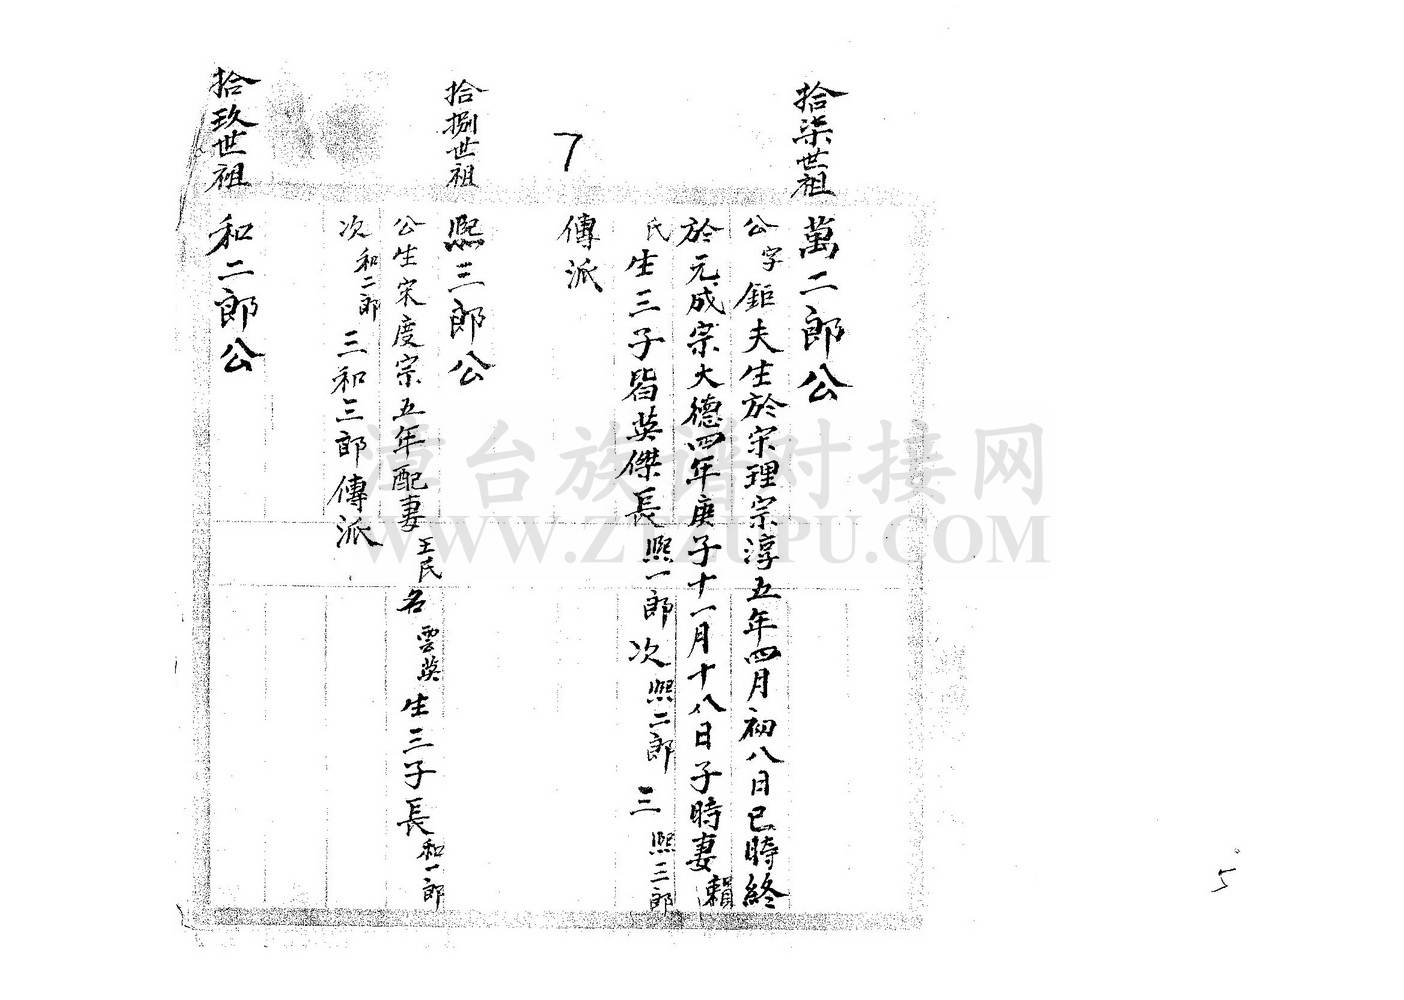 拾柒世祖 萬二郎公
公字鉅夫生於宋理宗淳五年四月初八日巳時終
於元成宗大德四年庚子十一月十八日子時妻賴
氏生三子皆英傑長熙一郎次熙二郎三熙三郎
傳派
7
拾捌世祖 熙三郎公
公生宋度宗五年配妻王氏名雲英生三子長和一郎
次和二郎三和三郎傳派
拾玖世祖 和二郎公
漳台族谱对接网
WWW.ZTZUPU.COM
5